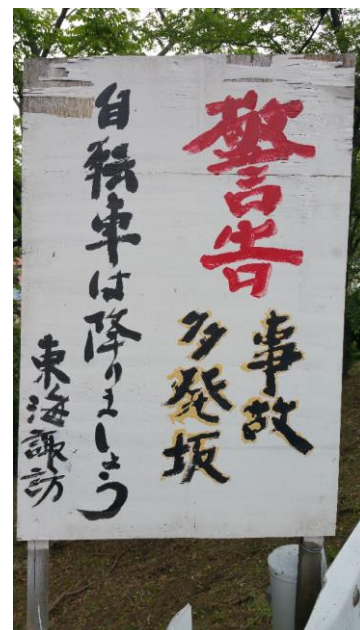 警告
事故
多発坂
自転車は降りましょう
東海諏訪